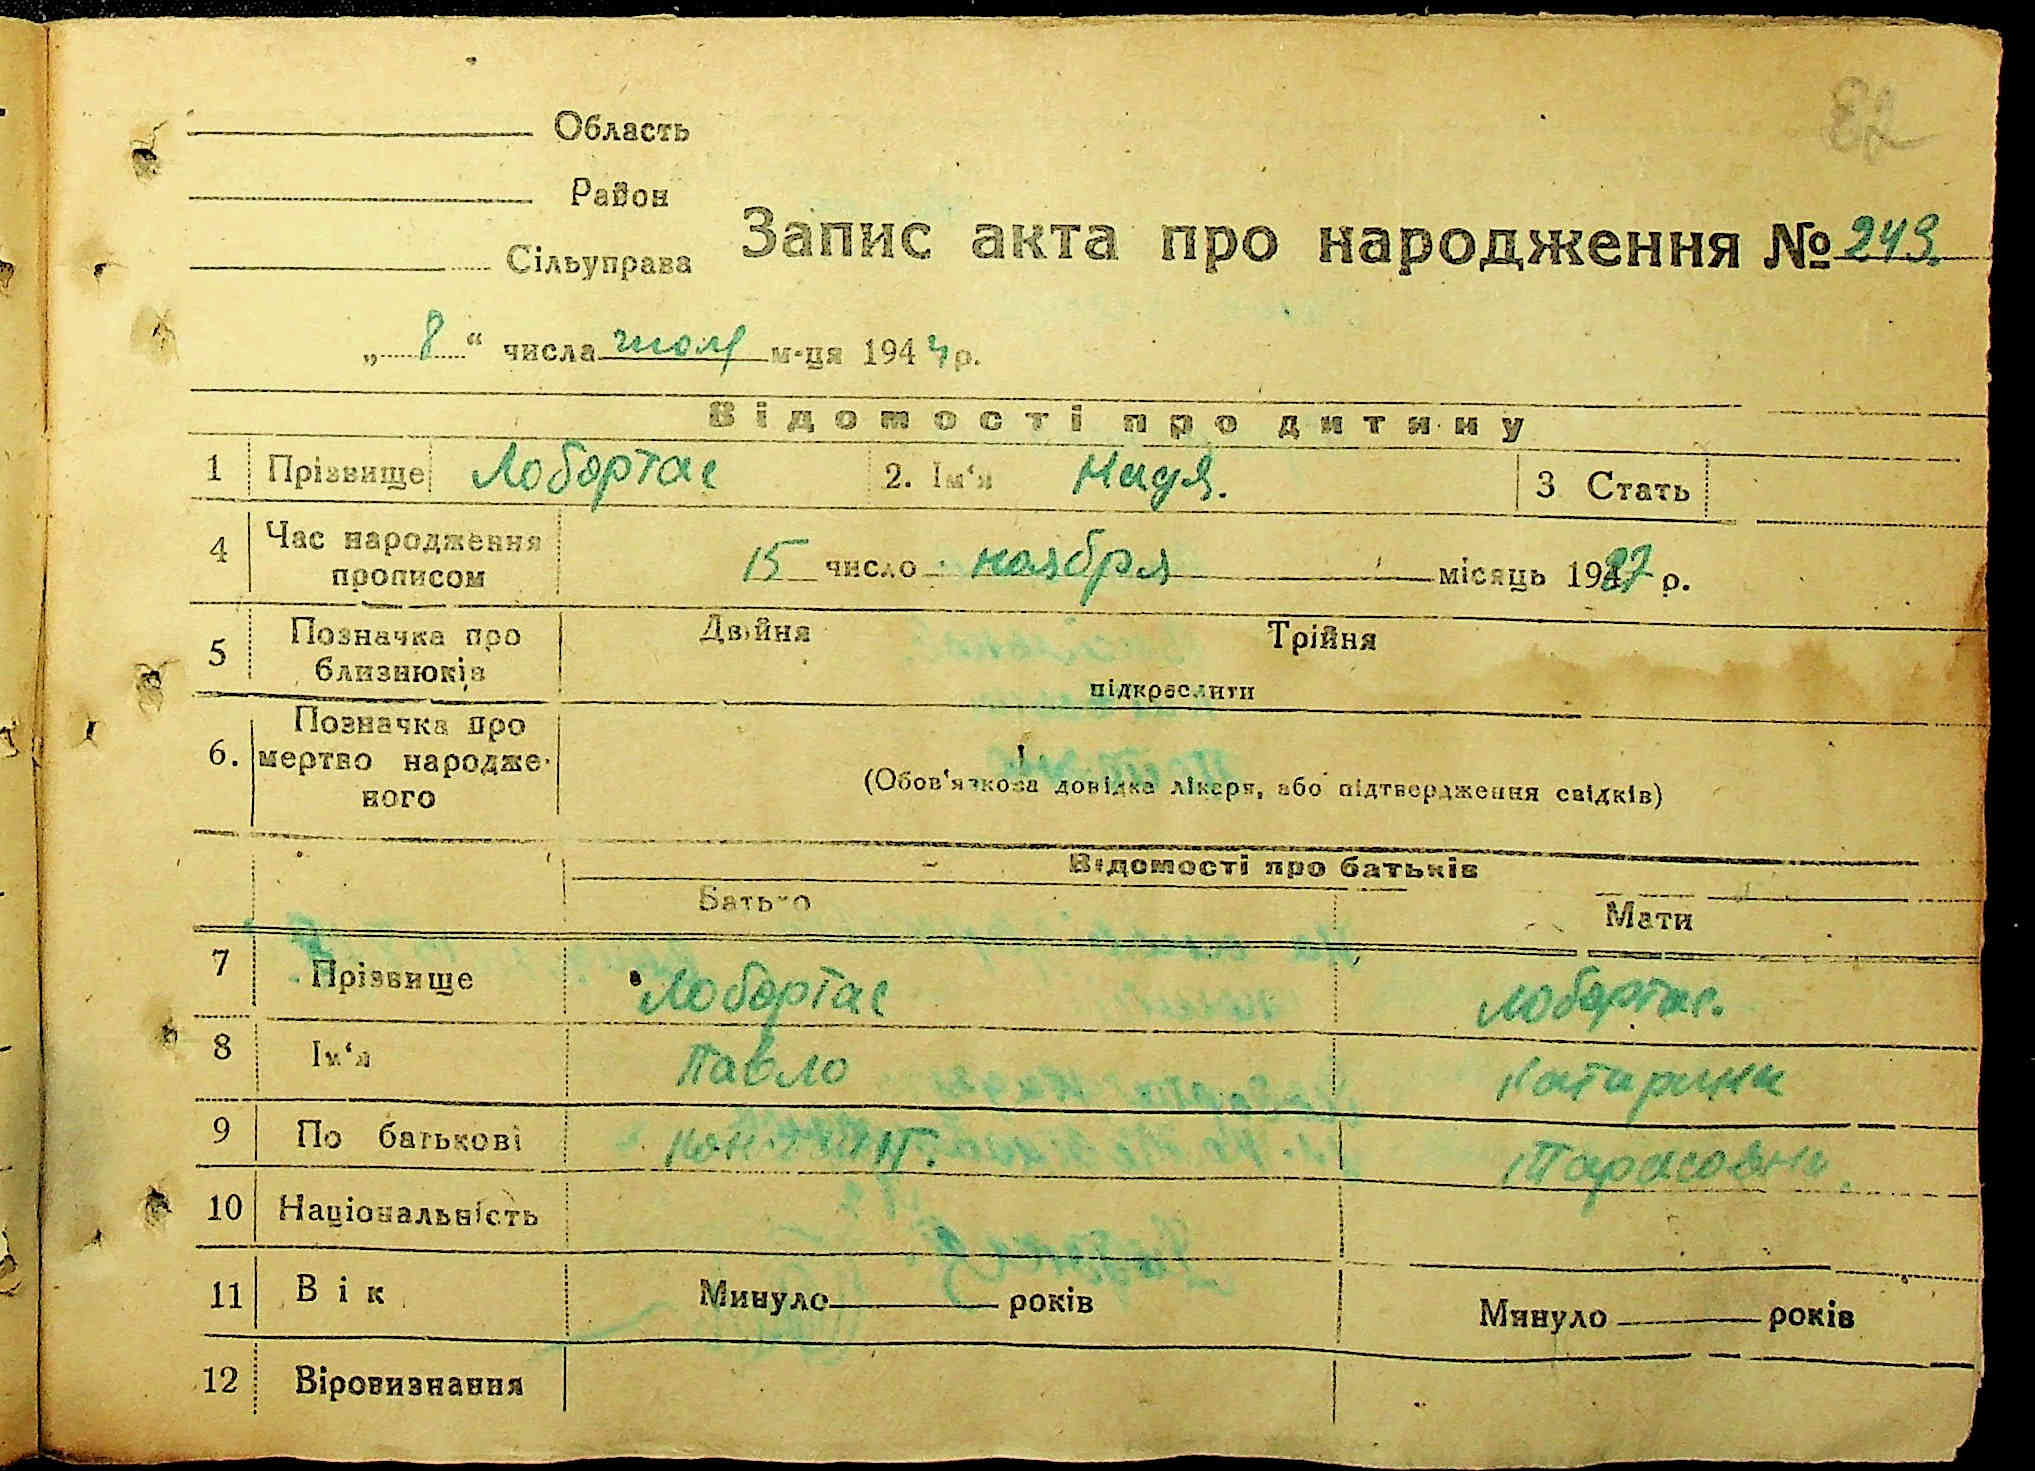 82
Область
Район
Сільуправа
Запис акта про народження № 249.
„ 8 “ числа июля м-ця 1943 р.
Відомості про дитину
1 Прізвище Лобортас 2. Ім‘я Надя. 3 Стать
4 Час народження прописом 15 число ноября місяць 1937 р.
5 Позначка про близнюків Двійня Трійня
підкреслити
6. Позначка про мертво народже-
ного
(Обов‘язкова довідка лікаря, або підтвердження свідків)
Відомості про батьків
Батько Мати
7 Прізвище Лобортас Лобортас.
8 Ім‘я Павло Катирина
9 По батькові Тарасовна
10 Національність
11 Вік Минуло років Минуло років
12 Віровизнання